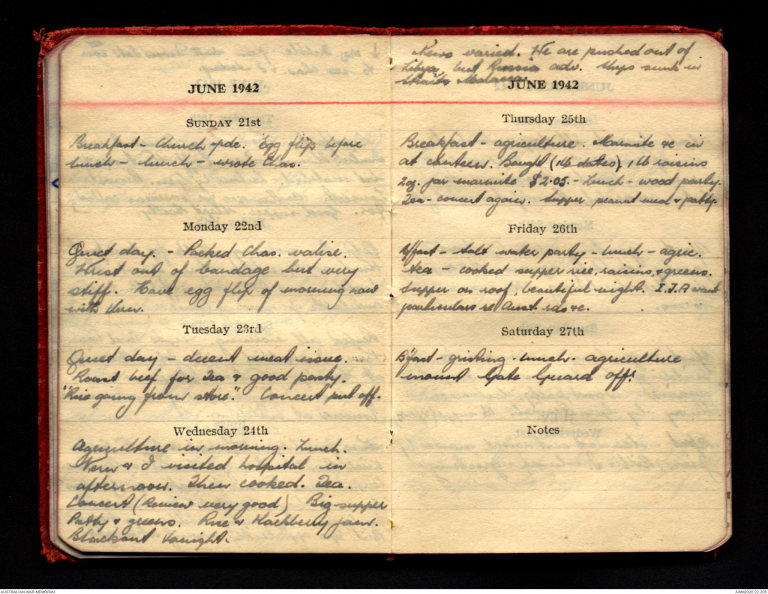 JUNE 1942
SUNDAY 21st
Breakfast - Church pde. Egg flip before
lunch - lunch - wrote Chas.
Monday 22nd
Quiet day. - Packed Chas. valise.
Wrist out of bandage but very
stiff. Have egg flip of morning now
with them.
Tuesday 23rd
Quiet day - decent meat issue.
Roast beef for Tea & good pasty.
"Rice going from store". Concert put off.
Wednesday 24th
Agriculture in morning. Lunch.
Norm & I visited hospital in
afternoon. Then cooked. Tea.
Concert (Review very good) Big supper
Patty & greens. Rice & blackberry jam.
Blackout tonight.
News varied. We are pushed out of
Libya, but Russia adv. Ships sunk in
Straits Malacca
JUNE 1942
Thursday 25th
Breakfast - agriculture. Marmite &c in
at canteen. Bought (1lb dates) 1 lb raisins
2oz. jar marmite $2.05. - Lunch - wood party.
Tea - concert again. Supper peanut meal & patty.
Friday 26th
B'fast - salt water party - lunch - agric.
tea - cooked supper rice, raisins, & greens.
Supper on roof, beautiful night. I.J.A want
particulars re Aust rds &c.
Saturday 27th
B'fast - grinding - lunch. agriculture
mount Gate Guard off!
Notes
AUSTRALIAN WAR MEMORIAL